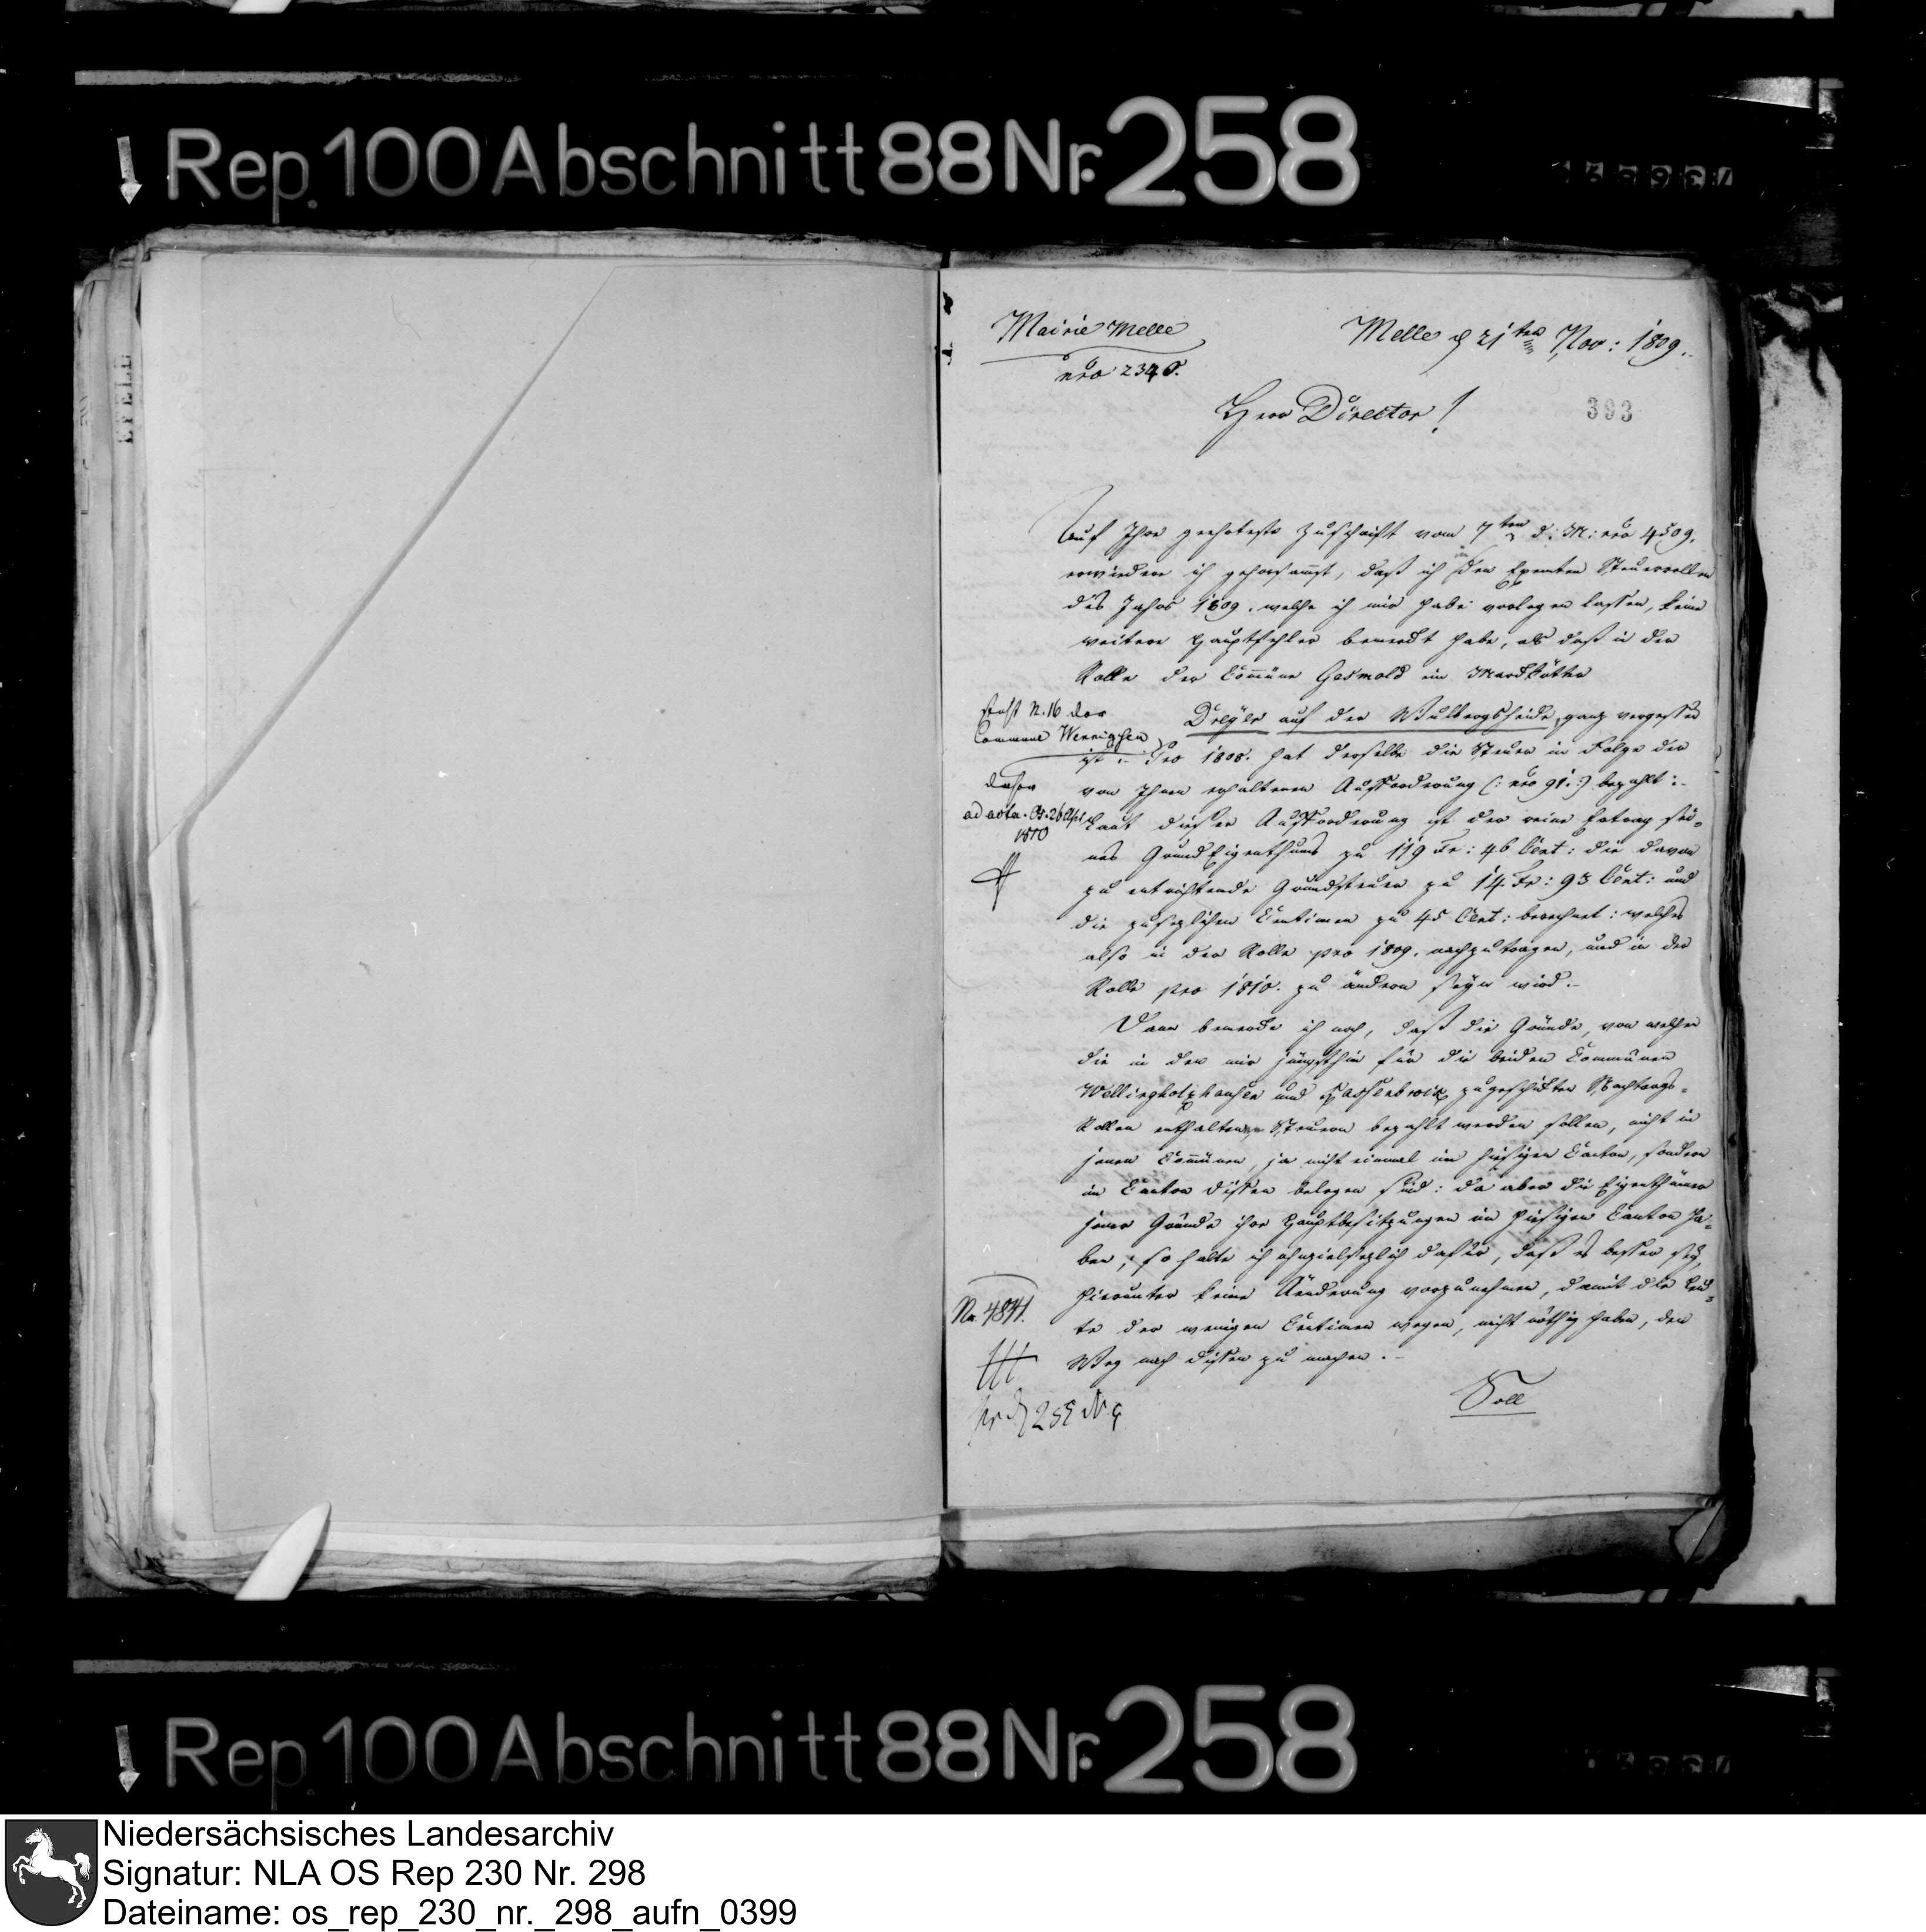 Rep. 100 Abschnitt 88 Nr. 258
Mairie Melle
nro 2340.
Melle d 21ten Nov: 1809.
Herr Director!
393
Auf Ihre geehrteste Zuschrift vom 7ten d: M: nro 4509.
erwiedere ich gehorsamst, daß ich in den Exemten Steuerrollen
des Jahrs 1809. welche ich mir habe vorlegen lassen, keine
weitere Hauptfehler bemerckt habe, als daß in der
Rolle der Commüne Gesmold ein Marckkötter
steht N. 16 der
Commune Wennigsen
daher
ad acta. Os. 26 Apr
1810
Dreyer auf der Wulbergsheide, ganz vergessen
ist. – Pro 1808. hat derselbe die Steuer in Folge der
von Ihnen erhaltenen Aufforderung (: nro 91. :) bezahlt: –
Laut dieser Aufforderung ist der reine Ertrag sei-
nes Grund Eigenthums zu 119 Fr: 46 Cent: die davon
zu entrichtende Grundsteuer zu 14. Fr: 93 Cent: und
die zusezlichen Centimen zu 45 Cent: berechnet: welches
also in der Rolle pro 1809. nachzutragen, und in der
Rolle pro 1810. zu ändern seyn wird. –
Dann bemercke ich noch, daß die Gründe, von welchen
die in den mir jüngsthin für die beiden Communen
Wellingholzhausen und zugeschickten Nachtrags-
Rollen enthaltenen Steuern bezahlt werden sollen, nicht in
jenen Commünen, ja nicht einmal im hiesigen Canton, sondern
im Canton Dissen belegen sind: da aber die Eigenthümer
jener Gründe ihre Hauptbesitzungen im hiesigen Canton ha-
ben, so halte ich ohnzielsezlich dafür, daß es besser sey,
hierunter keine Aenderung vorzunehmen, damit die Leu-
te der wenigen Centimen wegen, nicht nöthig haben, den
Weg nach Dissen zu machen. –
No. 4841.
Soll
Rep. 100 Abschnitt 88 Nr. 258
Niedersächsisches Landesarchiv
Signatur: NLA OS Rep 230 Nr. 298
Dateiname: os_rep_230_nr._298_aufn_0399